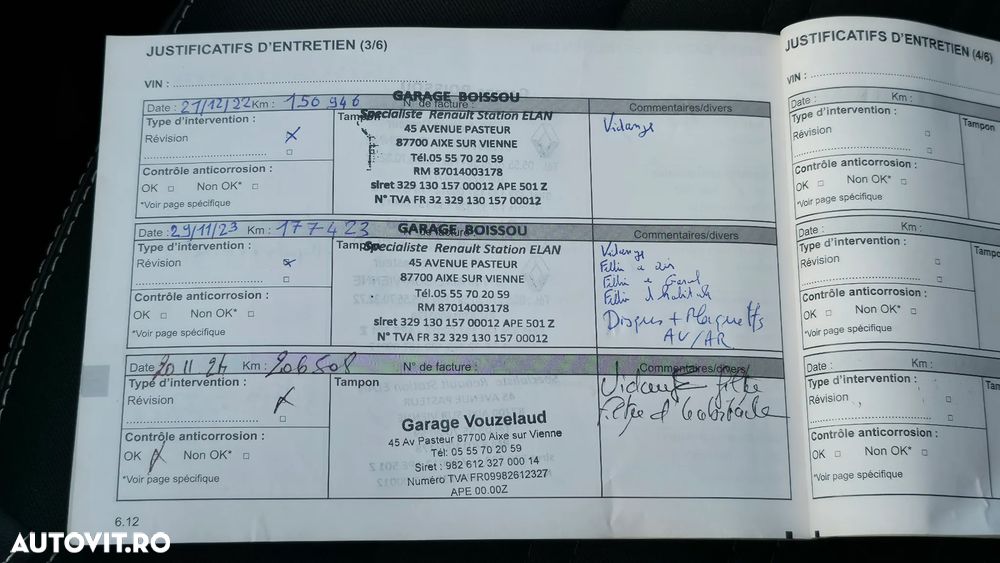 JUSTIFICATIFS D'ENTRETIEN (3/6)
VIN :
Date : 21/12/22 Km : 150 946 N° de facture : Commentaires/divers
GARAGE BOISSOU
Type d'intervention :
Tampon
Spécialiste Renault Station ELAN
Vidange
Révision
45 AVENUE PASTEUR
87700 AIXE SUR VIENNE
Tél.05 55 70 20 59
Contrôle anticorrosion :
RM 87014003178
OK Non OK*
siret 329 130 157 00012 APE 501 Z
*Voir page spécifique
N° TVA FR 32 329 130 157 00012
Date : 29/11/23 Km : 177423 N° de facture : Commentaires/divers
GARAGE BOISSOU
Type d'intervention :
Tampon
Specialiste Renault Station ELAN
Vidange
Révision
45 AVENUE PASTEUR
Filtre a air
87700 AIXE SUR VIENNE
Filtre a
Tél.05 55 70 20 59
Filtre
Contrôle anticorrosion :
RM 87014003178
OK Non OK*
siret 329 130 157 00012 APE 501 Z
Disques + Plaquettes
*Voir page spécifique
N° TVA FR 32 329 130 157 00012
AV/AR
Date 20 11 24 Km : 206508 N° de facture : Commentaires/divers/
Type d'intervention :
Tampon
Vidange filtre
Révision
Filtre d'habitacle
Garage Vouzelaud
Contrôle anticorrosion :
45 Av Pasteur 87700 Aixe sur Vienne
OK Non OK*
Tél: 05 55 70 20 59
Siret : 982 612 327 000 14
*Voir page spécifique
Numéro TVA FR09982612327
APE 00.00Z
6.12
JUSTIFICATIFS D'ENTRETIEN (4/6)
VIN :
Date : Km :
Type d'intervention :
Tampon
Révision
Contrôle anticorrosion :
OK Non OK*
*Voir page spécifique
Date : Km :
Type d'intervention :
Tampon
Révision
Contrôle anticorrosion :
OK Non OK*
*Voir page spécifique
Date : Km :
Type d'intervention :
Tampon
Révision
Contrôle anticorrosion :
OK Non OK*
*Voir page spécifique
AUTOVIT.RO